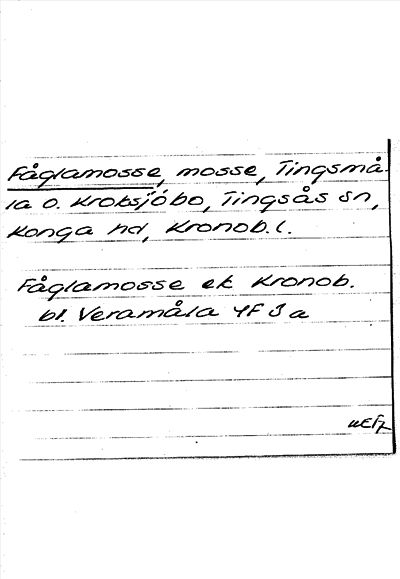 Fåglamosse, mosse, Tingsmå-
la o. Kroksjöbo, Tingsås sn,
Konga hd, Kronob. l.
Fåglamosse ek Kronob.
bl. Veramåla 4F 3a